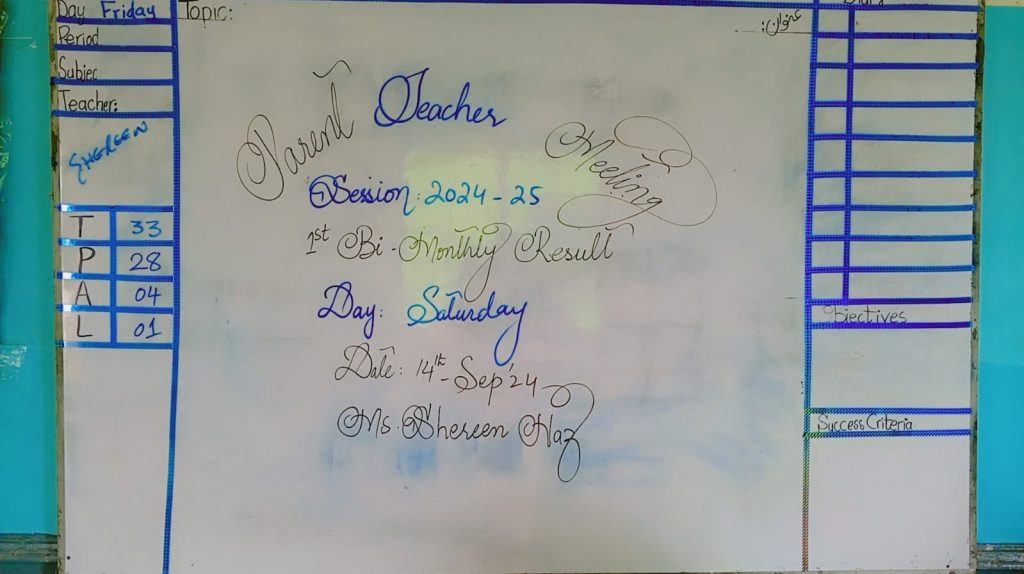 Day Friday
Period
Subjec
Teacher:
SHEREEN
T 33
P 28
A 04
L 01
Topic:
عنوان:
Parent Teacher Meeting
Session: 2024-25
1st Bi-Monthly Result
Day: Saturday
Date: 14th-Sep'24
Ms. Shereen Naz
Objectives
Success Criteria